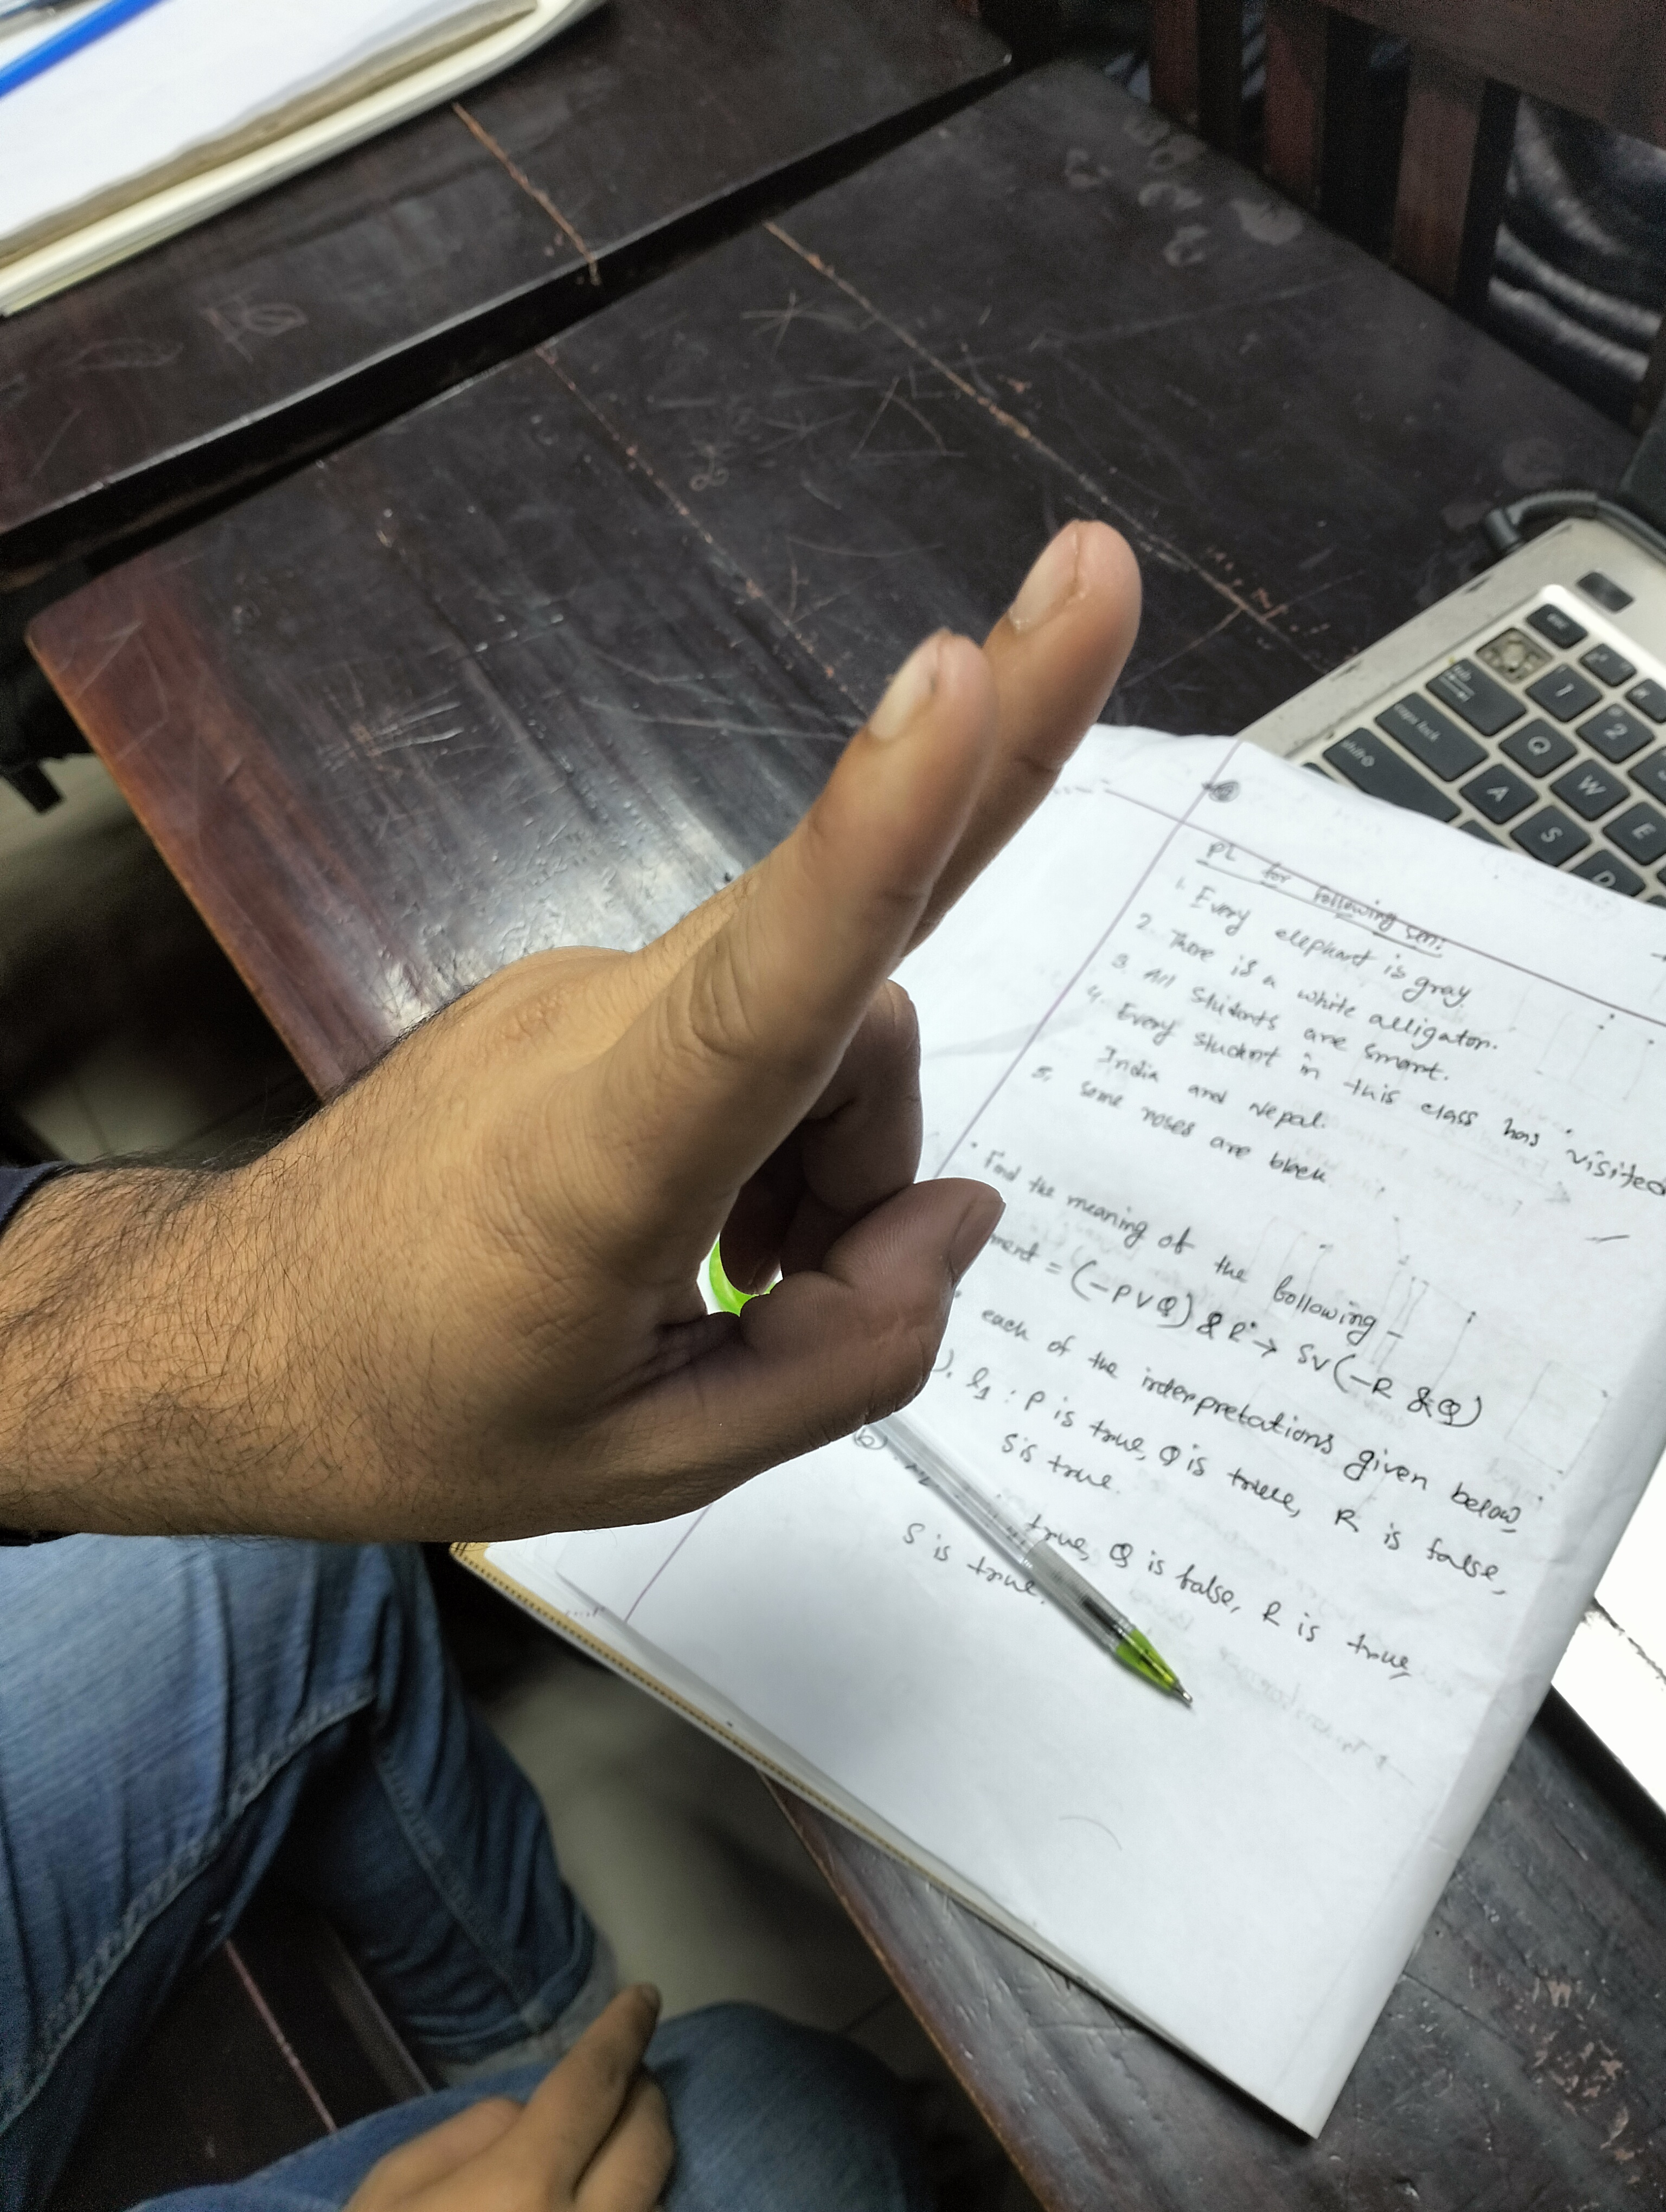 PL for following sen:
1. Every elephant is gray.
2. There is a white alligator.
3. All students are smart.
4. Every student in this class has visited
India and Nepal.
5. Some roses are black
• Find the meaning of the following –
ment = (–P∨Q) & R → S∨(–R & Q)
each of the interpretations given below,
). I1 : P is true, Q is true, R is false,
S is true.
(b)
true, Q is false, R is true,
S is true.
esc
tab
1
2
caps lock
Q
W
shift
A
S
E
D